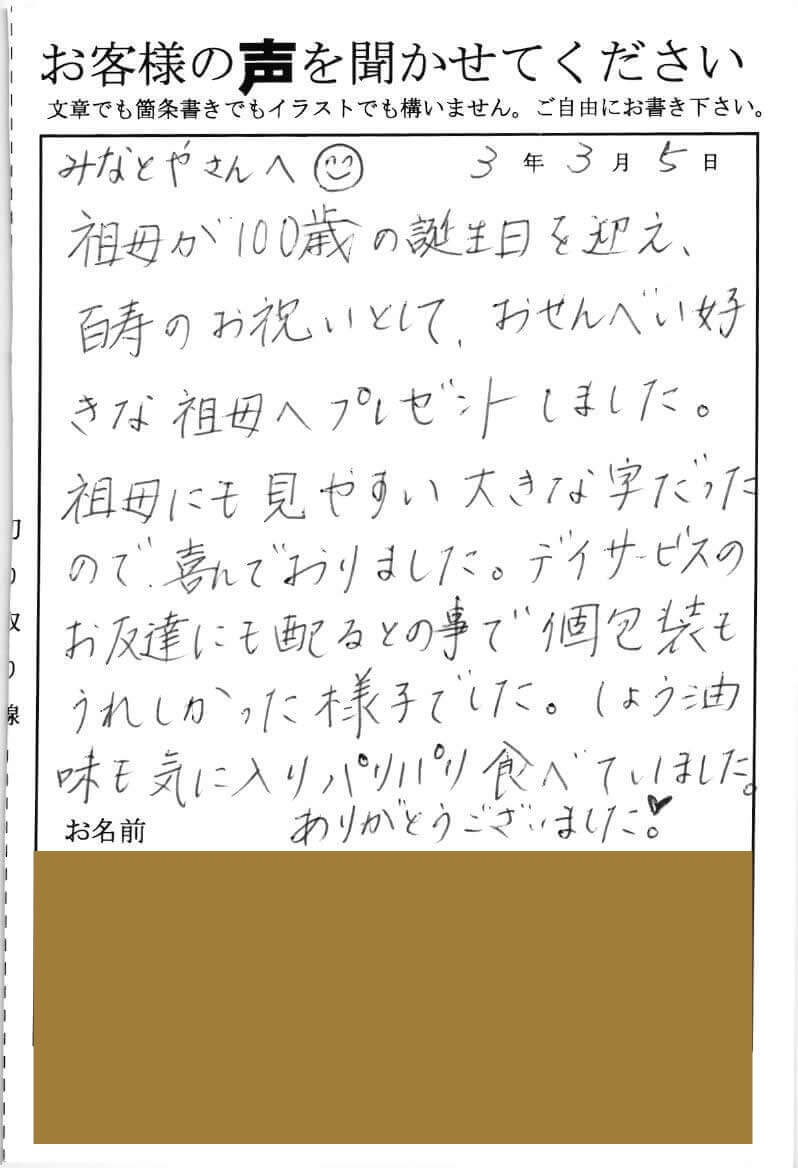 お客様の声を聞かせてください
文章でも箇条書きでもイラストでも構いません。ご自由にお書き下さい。
みなとやさんへ 3年3月5日
祖母が100歳の誕生日を迎え、
百寿のお祝いとして、おせんべい好
きな祖母へプレゼントしました。
祖母にも見やすい大きな字だった
ので、喜んでおりました。デイサービスの
お友達にも配るとの事で個包装も
うれしかった様子でした。しょう油
味も気に入りパリパリ食べていました。
ありがとうございました。
お名前